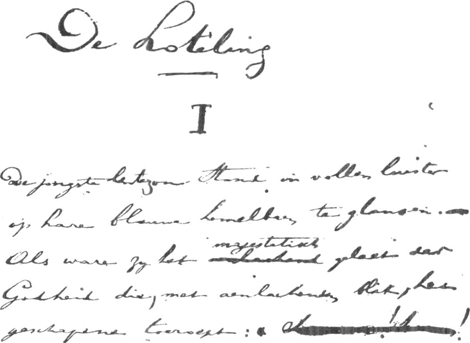 De Loteling
I
De jongste lentezon stond in vollen luister
op hare blauwe hemelbaen te glansen. —
Als ware zy het majestatisch gelaet der
Godheid die, met aenlachenden blik, het
geschapene toeroept: